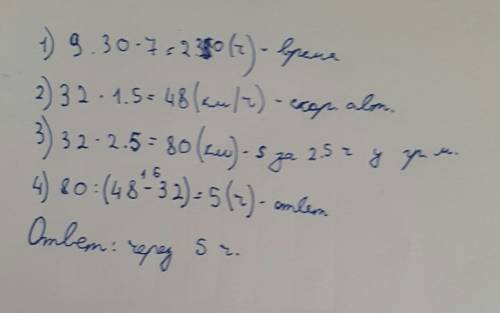 1) 9.30-7=2.30(ч)-время
2) 32 · 1.5 = 48 (км/ч) - скор. авт.
3) 32 · 2.5 = 80 (км) - s за 2.5 ч у гр. м.
4) 80 : (48 - 32) = 5 (ч) - ответ
16
Ответ: через 5 ч.